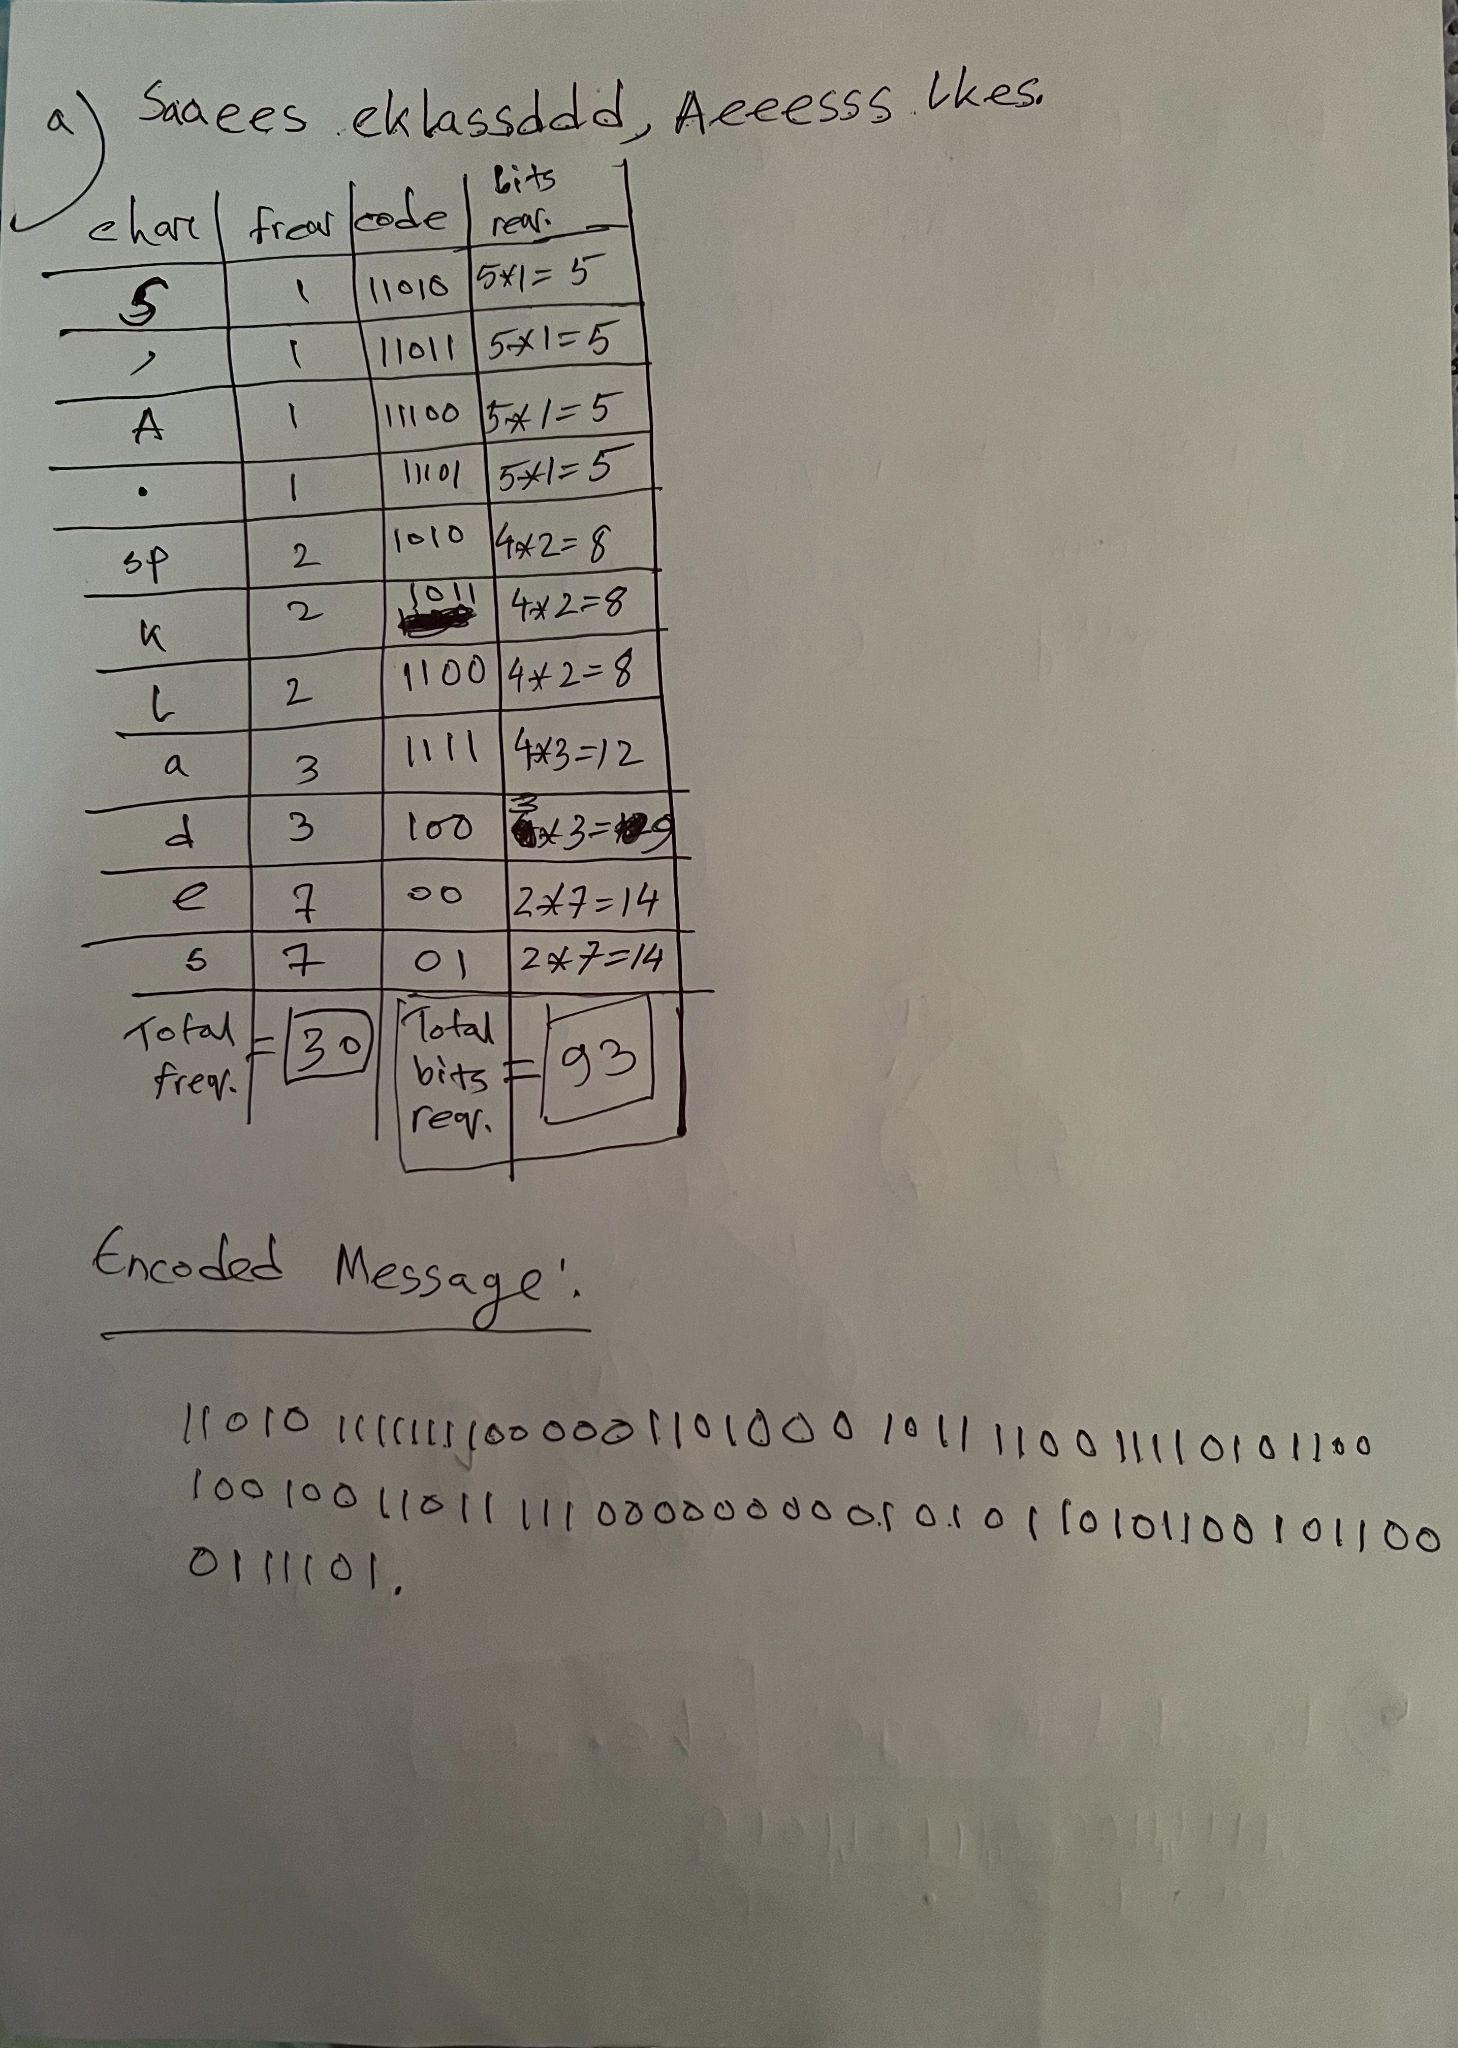 a) Saaees eklassddd, Aeeesss lkes.
char freq code bits req.
S 1 11010 5*1=5
, 1 11011 5*1=5
A 1 11100 5*1=5
. 1 11101 5*1=5
sp 2 1010 4*2=8
k 2 1011 4*2=8
l 2 1100 4*2=8
a 3 1111 4*3=12
d 3 100 3*3=9
e 7 00 2*7=14
s 7 01 2*7=14
Total freq. = 30 Total bits req. = 93
Encoded Message:
11010 11111111000001101000 1011 11001111 0101100
100100 11011 1110000000001010110101100101100
0111101.